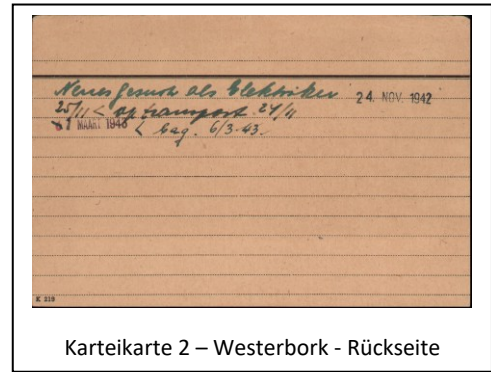 Neues Gesuch als Elektriker 24. NOV. 1942
25/11 < op transport 24/11
MAART 1943 < bag. 6/3-43.
K 210
Karteikarte 2 – Westerbork - Rückseite